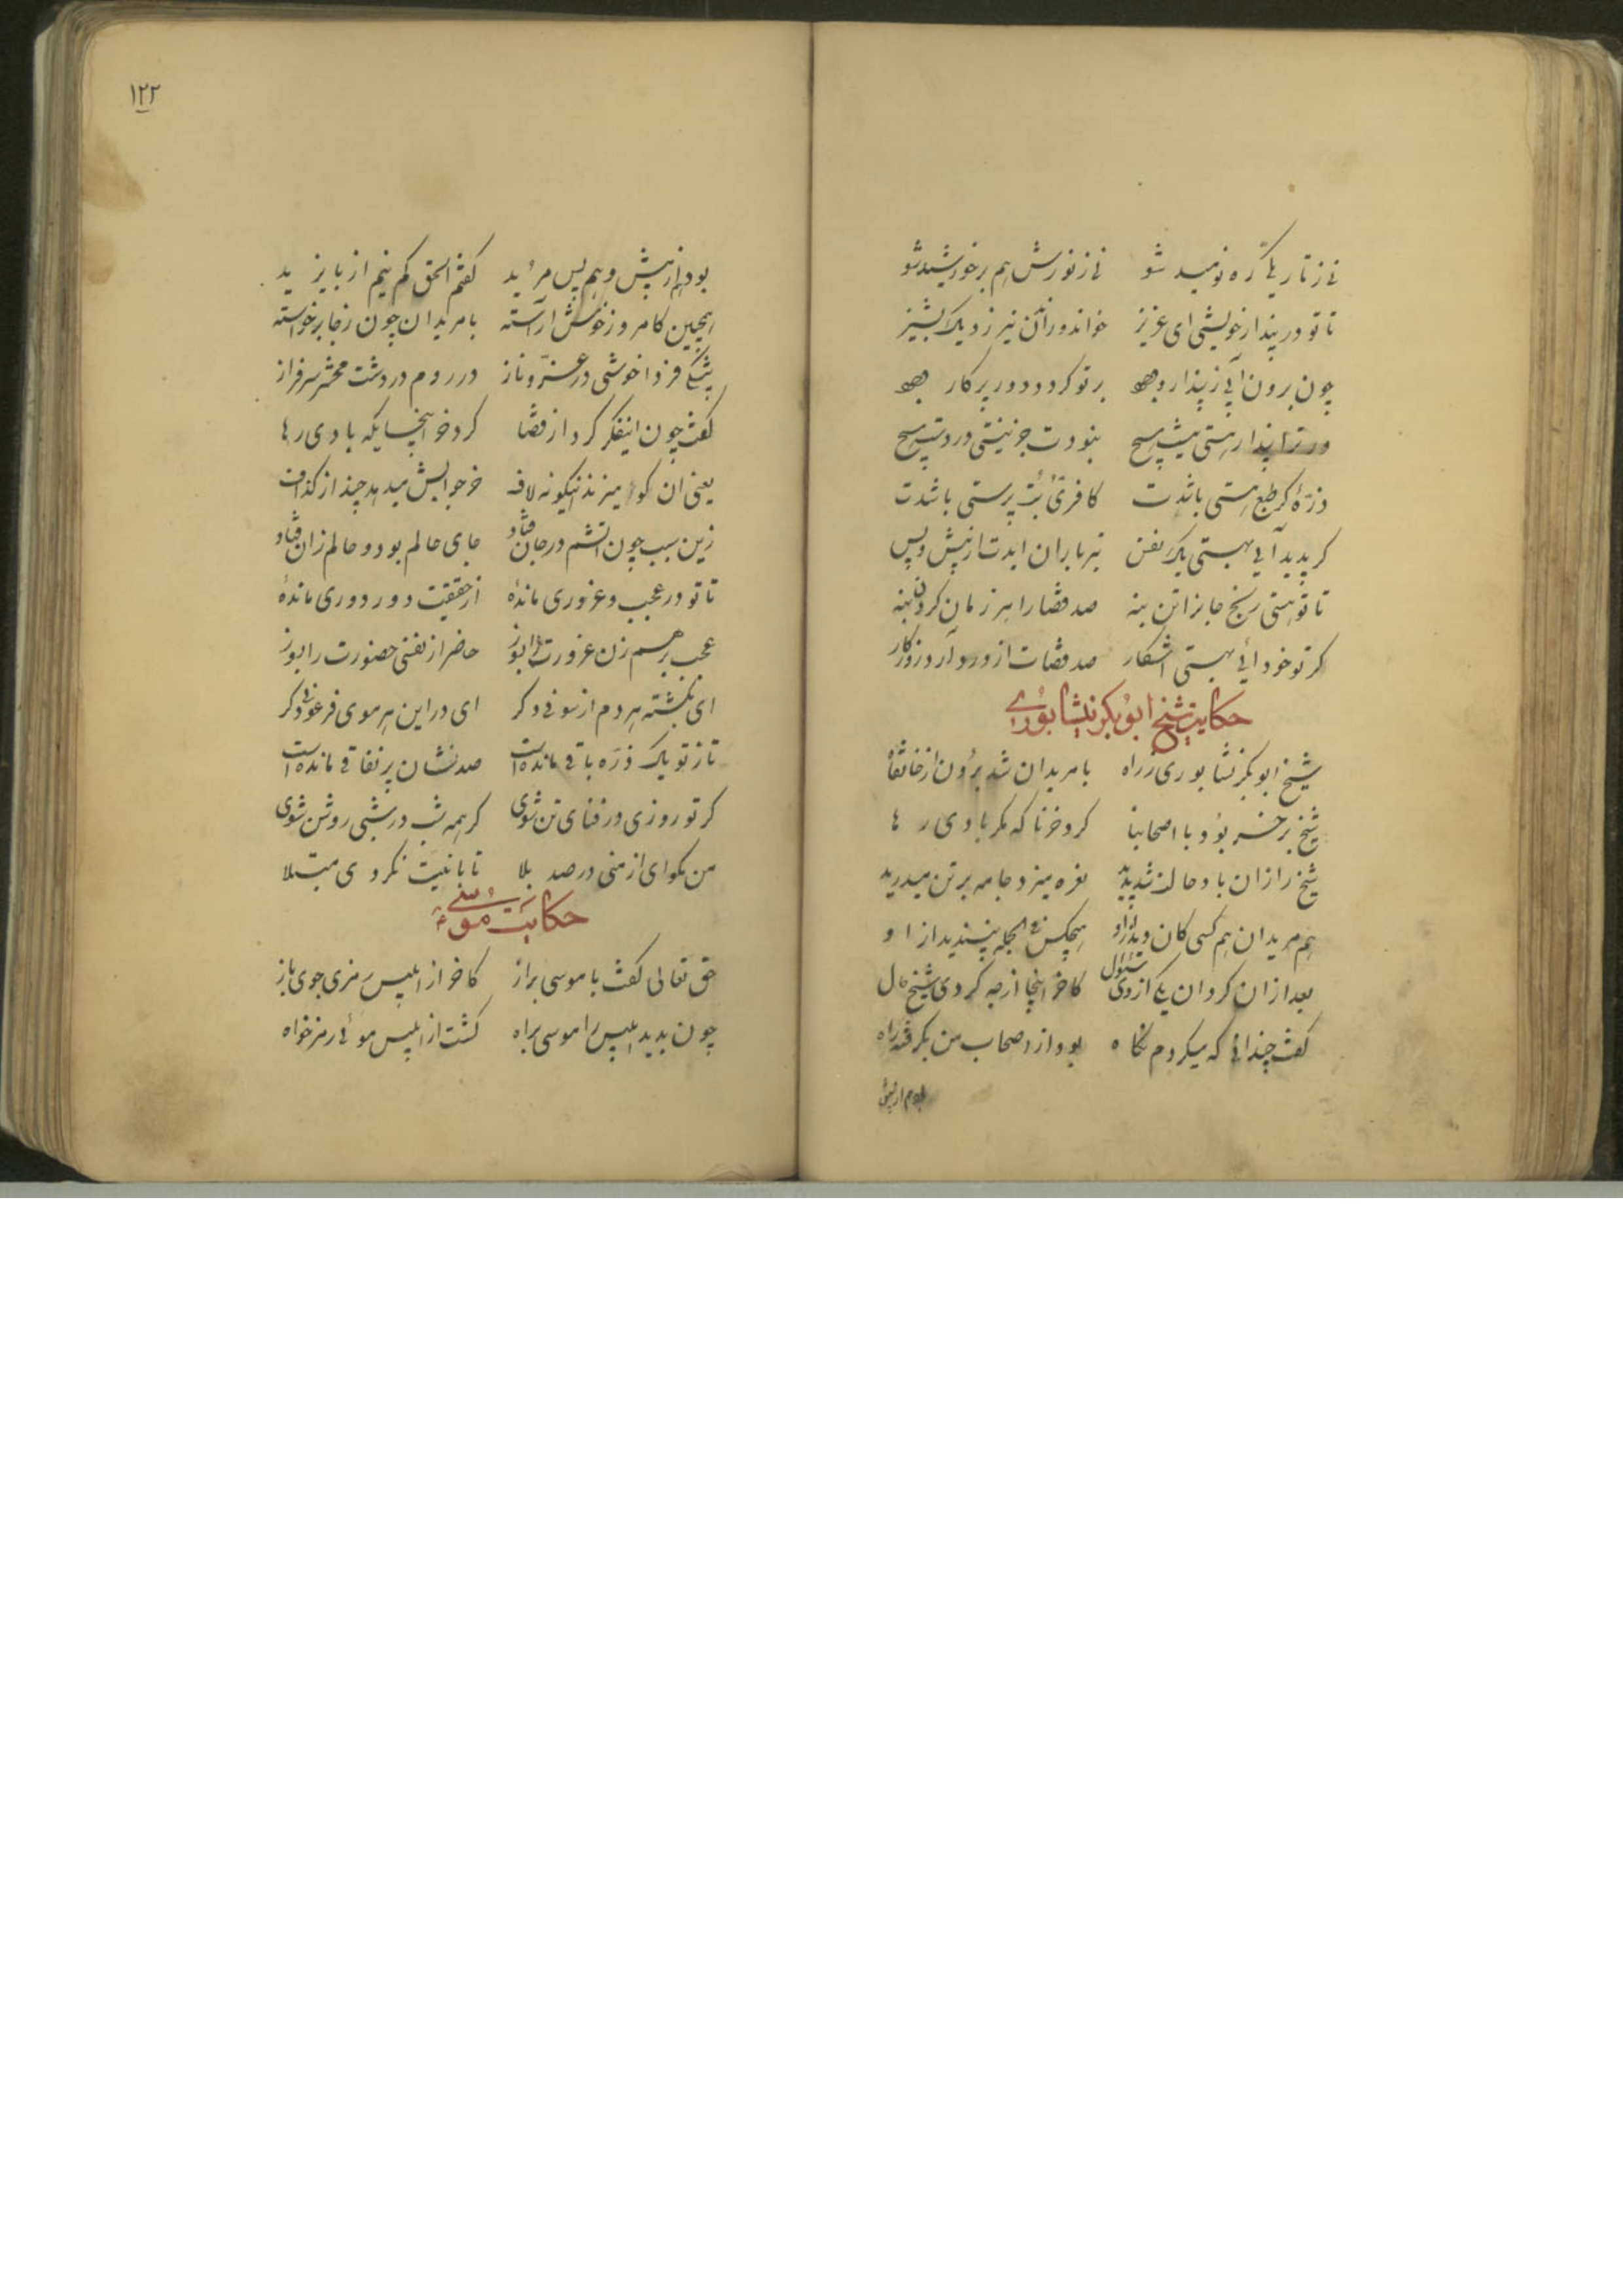 نی ز تاریکی ره نومید شو نی ز نورش هم بر خورشید شو
تا تو در پندار خویشی ای عزیز خواندن و راندن نیرزد یک پشیز
چون برون آیی ز پندار وجود بر تو کردد دور پرکار وجود
ور ترا پندار هستی هست هیچ نبودت جز نیستی در دست هیچ
ذرّهٔ کر طمع هستی باشدت کافری و بت پرستی باشدت
کر پدید آیی بهستی یک نفس تیر باران آیدت از پیش و پس
تا تو هستی رنج جانرا تن بنه صد قفا را هر زمان کردن بنه
کر تو خود آئی بهستی آشکار صد قفات از در درآرد روزکار
حکایت شیخ ابوبکر نیشابوری
شیخ ابوبکر نشابوری ز راه با مریدان شد برون از خانقاه
شیخ بر خر بود با اصحابنا کرد خر ناکه مکر بادی رها
شیخ را زان باد حالت شد پدید نعره میزد جامه بر تن میدرید
هم مریدان هم کسی کان دید ازو هیچکس فی الجمله نپسندید ازو
بعد از آن کرد آن یکی از وی سئوال کاخر اینجا از چه کردی شیخ حال
کفت چندانی که میکردم نکاه بود از اصحاب من بکرفته راه
بودم از پیش
۱۲۲
بودهم از پیش و هم پس مرید کفتم الحق کم نیم از بایزید
همچنین کامروز خوش آراسته با مریدان چون ز جا برخواسته
بیشکی فردا خوشی در عزّ و ناز در روم در دشت محشر سرفراز
کفت چون این فکر کرد از قضا کرد خر اینجایکه بادی رها
یعنی آن کو میزند اینکونه لاف خر جوابش میدهد چند از کذاف
زین سبب چون آتشم در جان فتاد جای حالم بود و حالم زان فتاد
تا تو در عجب و غروری ماندهٔ از حقیقت دور دوری ماندهٔ
عجب بر هم زن غرورت را بسوز حاضر از نفسی حضورت را بسوز
ای بکشته هر دم از لونی دکر ای در این هر موی فرعونی دکر
تا ز تو یک ذرّه باقی مانده است صد نشان پر نفاقی مانده است
کر تو روزی در فنای تن شوی کر همه شب در شبی روشن شوی
من مکو ای از منی در صد بلا تا بابلیسی نکردی مبتلا
حکایت موسی ع
حق تعالی کفت با موسی براز کاخر از ابلیس رمزی جوی باز
چون بدید ابلیس را موسی براه کشت از ابلیس موسی رمزخواه